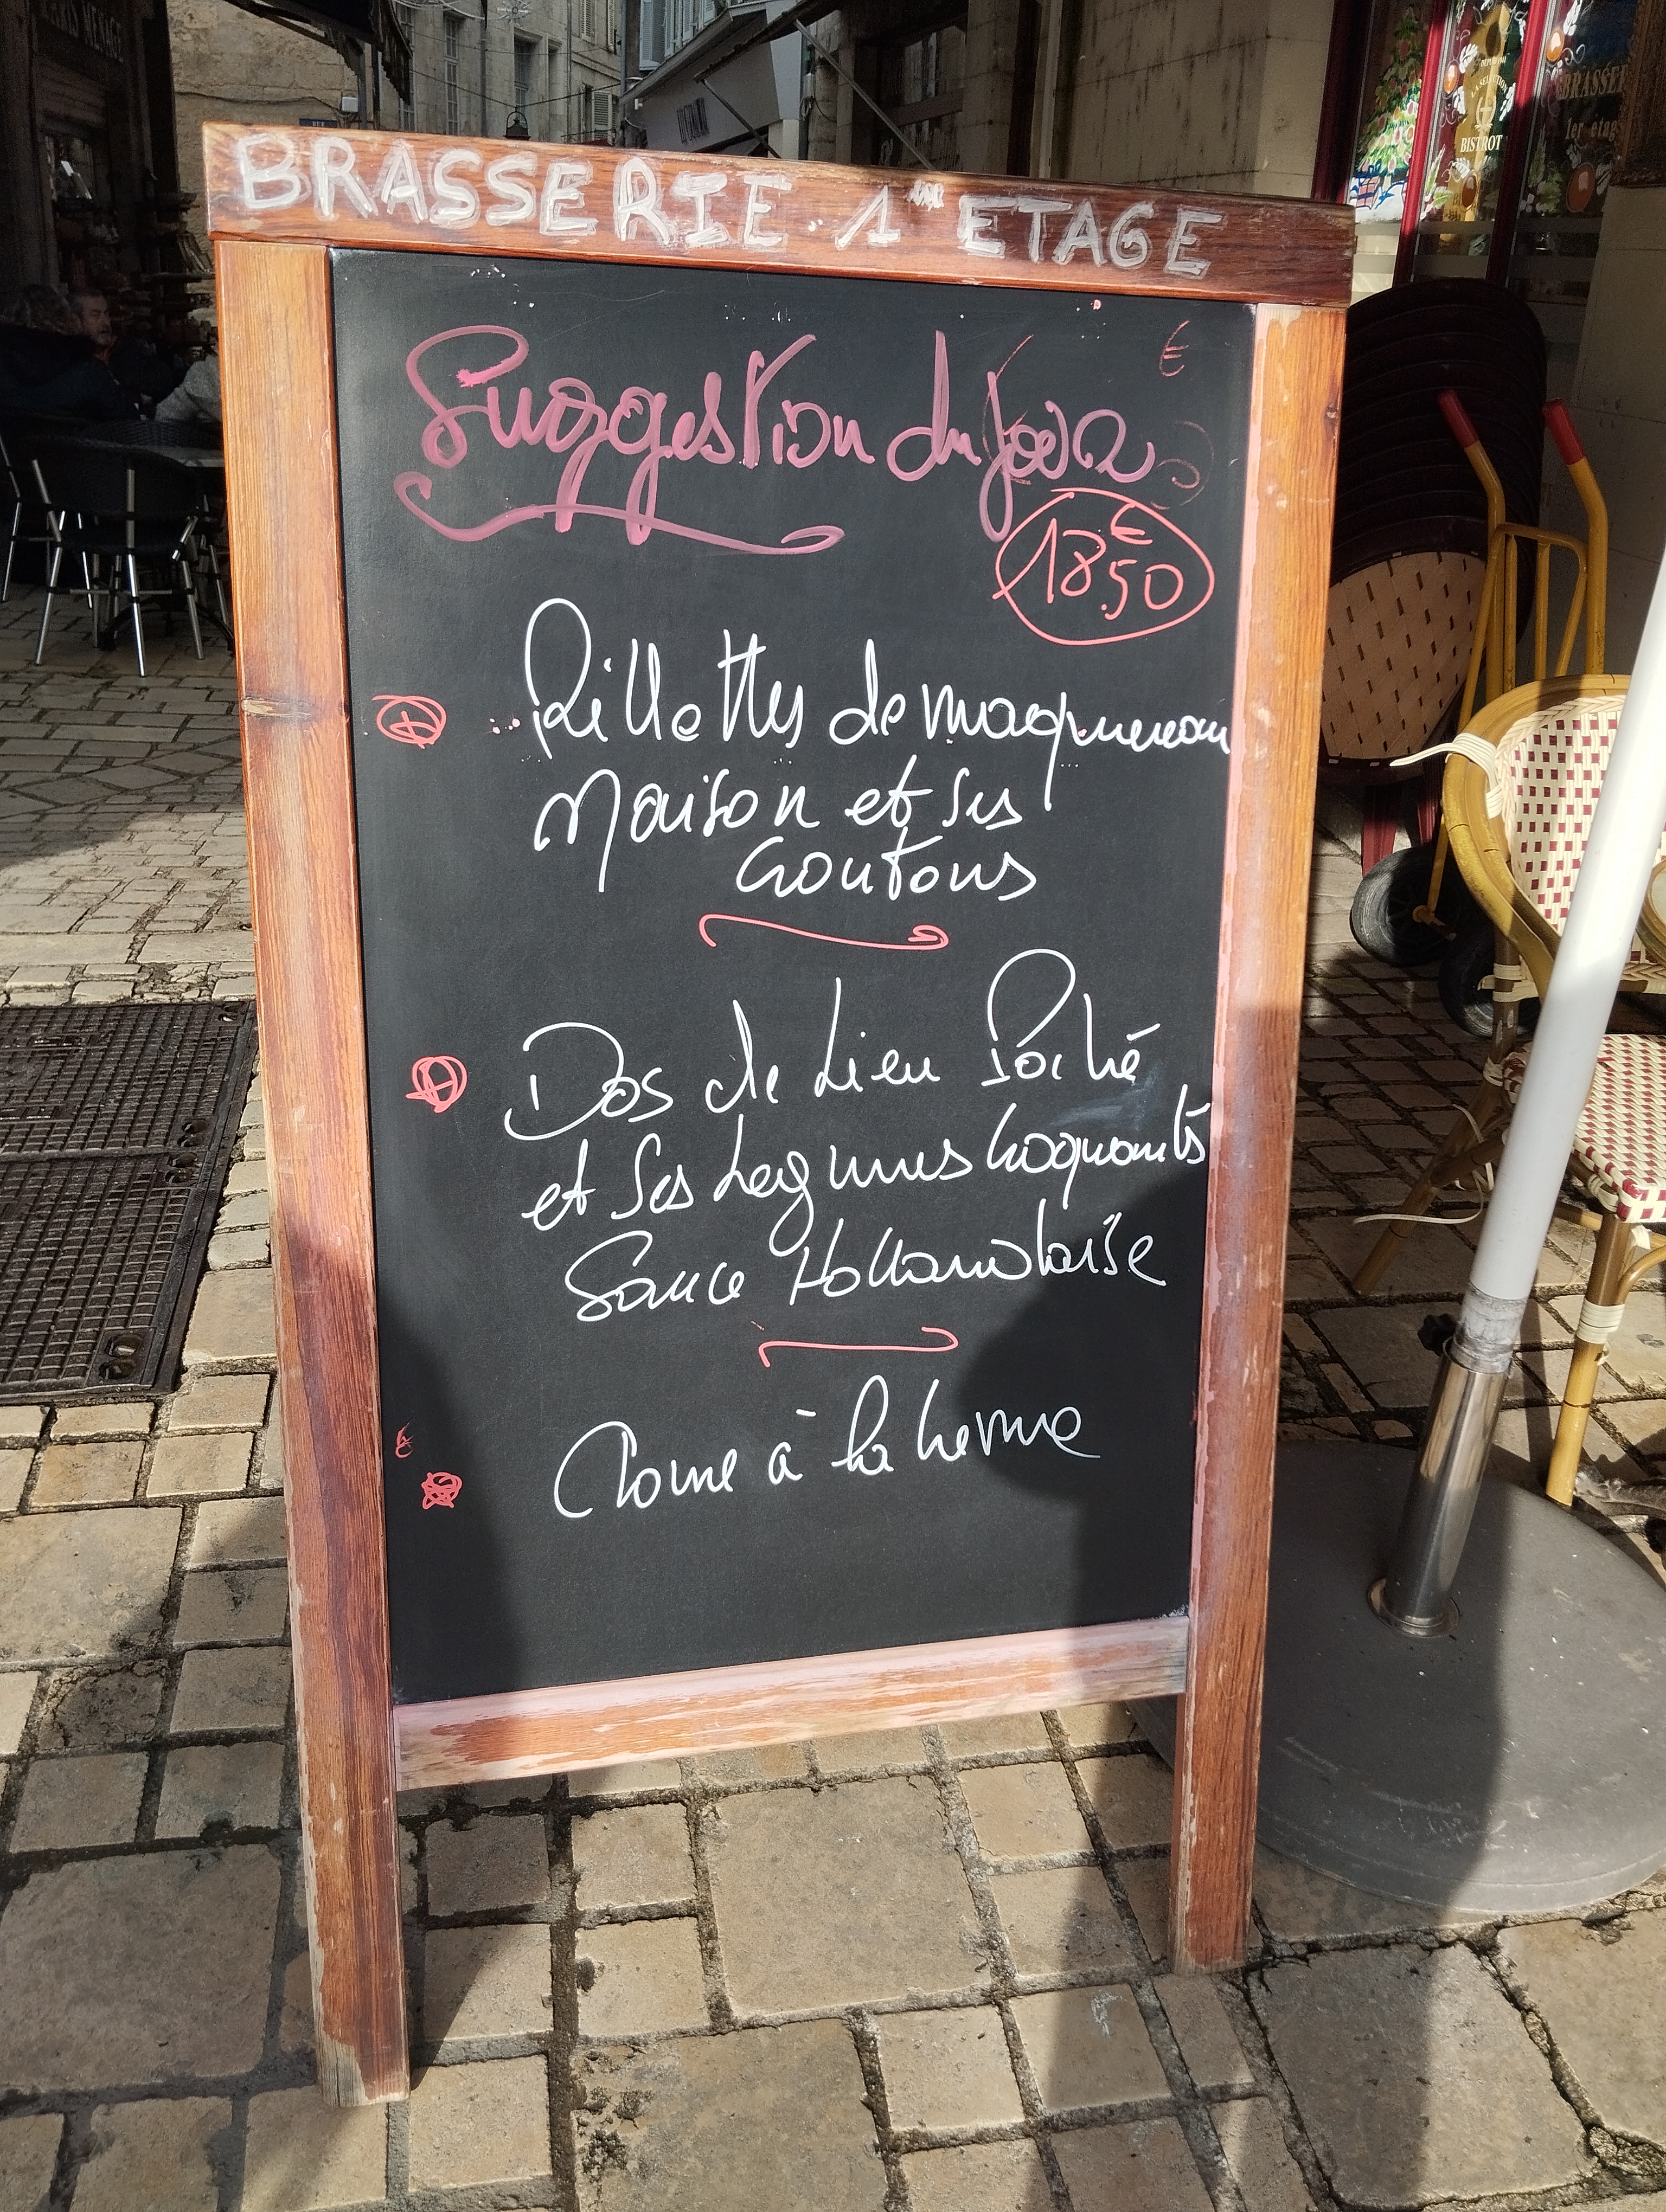 BRASSERIE 1er ETAGE
Suggestion du jour
€
18,50
Rillettes de maquereau
Maison et ses
croutons
Dos de Lieu Poché
et ses Legumes croquants
Sauce Hollandaise
à la
BISTROT
BRASSERIE
1er etage